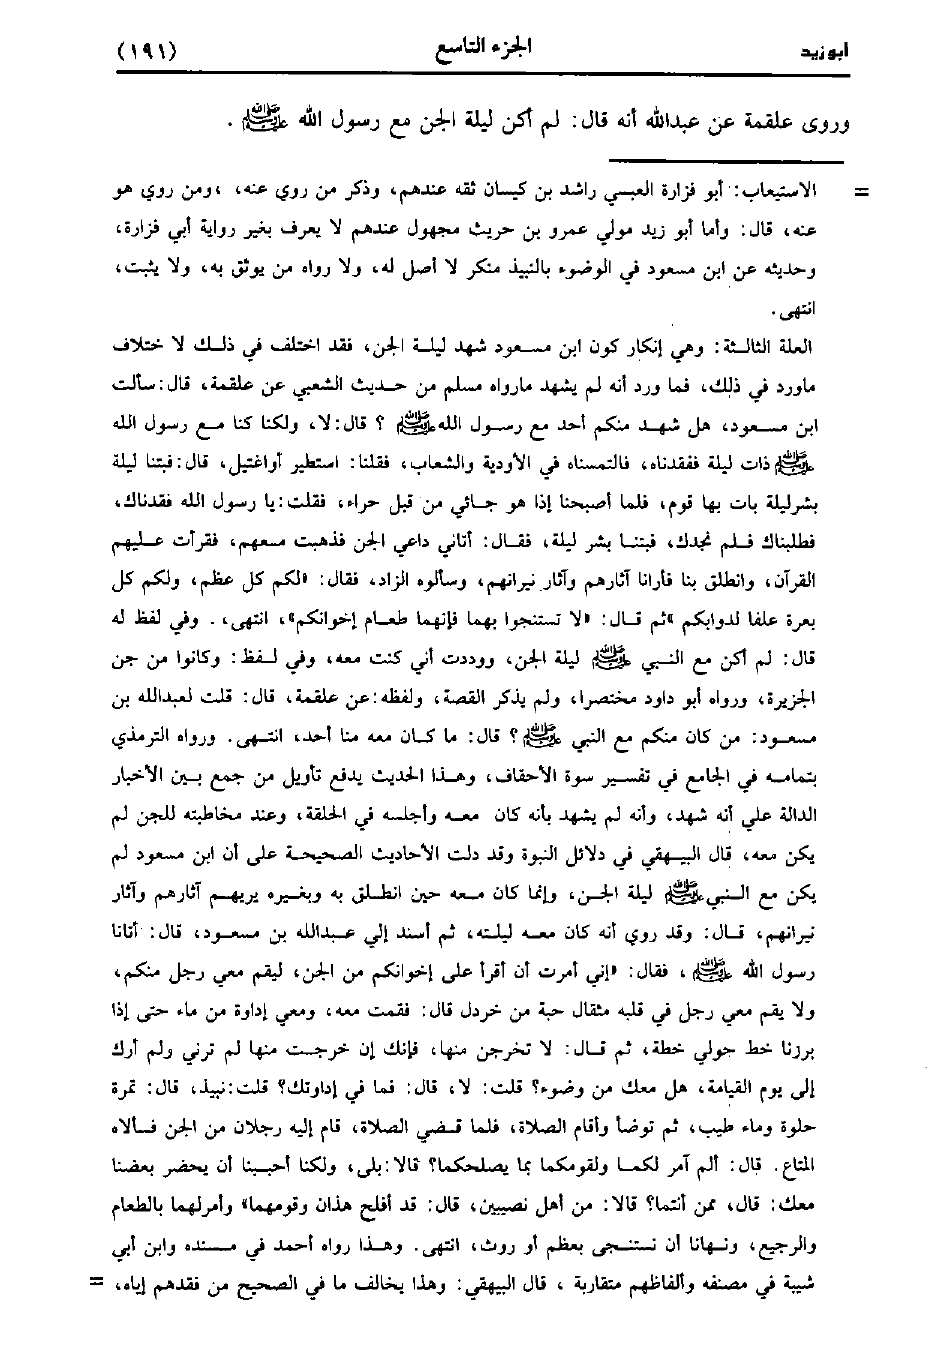 أبو زيد الجزء التاسع (١٩١)
وروى علقمة عن عبدالله أنه قال: لم أكن ليلة الجن مع رسول الله ﷺ .
= الاستيعاب: أبو فزارة العبسي راشد بن كيسان ثقه عندهم، وذكر من روي عنه، ،ومن روي هو
عنه، قال: وأما أبو زيد مولي عمرو بن حريث مجهول عندهم لا يعرف بغير رواية أبي فزارة،
وحديثه عن ابن مسعود في الوضوء بالنبيذ منكر لا أصل له، ولا رواه من يوثق به، ولا يثبت،
انتهى.
العلة الثالثة: وهي إنكار كون ابن مسعود شهد ليلة الجن، فقد اختلف في ذلك لا ختلاف
ماورد في ذلك، فما ورد أنه لم يشهد مارواه مسلم من حديث الشعبي عن علقمة، قال:سألت
ابن مسعود، هل شهد منكم أحد مع رسول اللهﷺ ؟ قال:لا، ولكنا كنا مع رسول الله
ﷺ ذات ليلة ففقدناه، فالتمسناه في الأودية والشعاب، فقلنا: استطير أواغتيل، قال:فبتنا ليلة
بشرليلة بات بها قوم، فلما أصبحنا إذا هو جائي من قبل حراء، فقلت:يا رسول الله فقدناك،
فطلبناك فلم نجدك، فبتنا بشر ليلة، فقال: أتاني داعي الجن فذهبت معهم، فقرأت عليهم
القرآن، وانطلق بنا فأرانا آثارهم وآثار نيرانهم، وسألوه الزاد، فقال: «لكم كل عظم، ولكم كل
بعرة علفا لدوابكم »ثم قال: «لا تستنجوا بهما فإنهما طعام إخوانكم»، انتهى، . وفي لفظ له
قال: لم أكن مع النبي ﷺ ليلة الجن، ووددت أني كنت معه، وفي لفظ: وكانوا من جن
الجزيرة، ورواه أبو داود مختصرا، ولم يذكر القصة، ولفظه:عن علقمة، قال: قلت لعبدالله بن
مسعود: من كان منكم مع النبي ﷺ ؟ قال: ما كان معه منا أحد، انتهى. ورواه الترمذي
بتمامه في الجامع في تفسير سوة الأحقاف، وهذا الحديث يدفع تأويل من جمع بين الأخبار
الدالة علي أنه شهد، وأنه لم يشهد بأنه كان معه وأجلسه في الحلقة، وعند مخاطبته للجن لم
يكن معه، قال البيهقي في دلائل النبوة وقد دلت الأحاديث الصحيحة على أن ابن مسعود لم
يكن مع النبيﷺ ليلة الجن، وإنما كان معه حين انطلق به وبغيره يريهم آثارهم وآثار
نيرانهم، قال: وقد روي أنه كان معه ليلته، ثم أسند إلي عبدالله بن مسعود، قال: أتانا
رسول الله ﷺ ، فقال: «إني أمرت أن أقرأ على إخوانكم من الجن، ليقم معي رجل منكم،
ولا يقم معي رجل في قلبه مثقال حبة من خردل قال: فقمت معه، ومعي إداوة من ماء حتى إذا
برزنا خط حولي خطة، ثم قال: لا تخرجن منها، فإنك إن خرجت منها لم ترني ولم أرك
إلى يوم القيامة، هل معك من وضوء؟ قلت: لا، قال: فما في إداوتك؟ قلت:نبيذ، قال: تمرة
حلوة وماء طيب، ثم توضأ وأقام الصلاة، فلما قضي الصلاة، قام إليه رجلان من الجن فسألاه
المتاع. قال: ألم آمر لكما ولقومكما بما يصلحكما؟ قالا:بلى، ولكنا أحببنا أن يحضر بعضنا
معك: قال، ممن أنتما؟ قالا: من أهل نصيبين، قال: قد أفلح هذان وقومهما» وأمرلهما بالطعام
والرجيع، ونهانا أن نستنجى بعظم أو روث، انتهى. وهذا رواه أحمد في مسنده وابن أبي
شيبة في مصنفه وألفاظهم متقاربة ، قال البيهقي: وهذا يخالف ما في الصحيح من فقدهم إياه، =